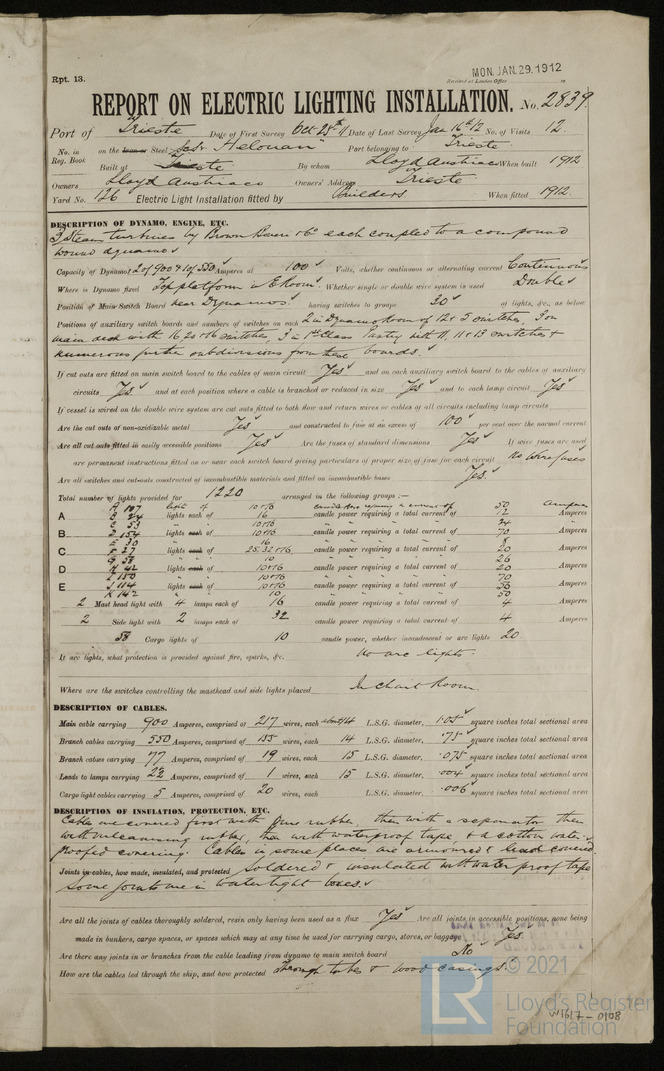 Rpt. 13.
MON. JAN. 29. 1912
Received at London Office
REPORT ON ELECTRIC LIGHTING INSTALLATION. No. 2839.
Port of Trieste Date of First Survey Oct. 28th 11 Date of Last Survey Jan 16th 12 No. of Visits 12.
No. in Reg. Book on the Iron or Steel "Helouan" Port belonging to Trieste
Built at Trieste By whom Lloyd Austriaco When built 1912
Owners Lloyd Austriaco Owners' Address Trieste
Yard No. 126 Electric Light Installation fitted by Builders When fitted 1912.
DESCRIPTION OF DYNAMO, ENGINE, ETC.
3 Steam turbines by Brown Boveri & Co each coupled to a compound
wound dynamo
Capacity of Dynamo 2 of 900 & 1 of 550 Amperes at 100 Volts, whether continuous or alternating current Continuous
Where is Dynamo fixed Top platform in E Room. Whether single or double wire system is used Double
Position of Main Switch Board near Dynamos. having switches to groups 30 of lights, &c., as below
Positions of auxiliary switch boards and numbers of switches on each 2 in Dynamo Room of 12 & 5 switches, 3 on
main deck with 16, 20 & 16 switches, 3 in 1st Class Pantry with 11, 11 & 13 switches &
numerous further subdivisions from these boards.
If cut outs are fitted on main switch board to the cables of main circuit Yes and on each auxiliary switch board to the cables of auxiliary
circuits Yes and at each position where a cable is branched or reduced in size Yes and to each lamp circuit Yes
If vessel is wired on the double wire system are cut outs fitted to both flow and return wires or cables of all circuits including lamp circuits
Are the cut outs of non-oxidizable metal Yes and constructed to fuse at an excess of 100 per cent over the normal current
Are all cut outs fitted in easily accessible positions Yes Are the fuses of standard dimensions Yes If wire fuses are used
are permanent instructions fitted on or near each switch board giving particulars of proper size of fuse for each circuit No wire fuses
Are all switches and cut-outs constructed of incombustible materials and fitted on incombustible bases Yes.
Total number of lights provided for 1220 arranged in the following groups :—
A 107 lights of 10 & 16 candle power requiring a current of 50 amperes
A B 24 lights each of 16 candle power requiring a total current of 12 Amperes
C 53 " 10 & 16 " 24 "
B D 154 lights each of 10 & 16 candle power requiring a total current of 70 Amperes
E 30 " 16 " 8 "
C F 27 lights each of 25, 32 & 16 candle power requiring a total current of 20 Amperes
G 58 " 10 " 26
D H 42 lights each of 10 & 16 candle power requiring a total current of 20 Amperes
I 150 " 10 & 16 " 70
E J 114 lights each of 10 & 16 candle power requiring a total current of Amperes
K 142 " 10 " 50
2 Mast head light with 4 lamps each of 16 candle power requiring a total current of 4 Amperes
2 Side light with 2 lamps each of 32 candle power requiring a total current of 4 Amperes
58 Cargo lights of 10 candle power, whether incandescent or arc lights 20
If arc lights, what protection is provided against fire, sparks, &c. No arc lights.
Where are the switches controlling the masthead and side lights placed In Chart Room.
DESCRIPTION OF CABLES.
Main cable carrying 900 Amperes, comprised of 217 wires, each about 14 L.S.G. diameter, 1.05 square inches total sectional area
Branch cables carrying 550 Amperes, comprised of 155 wires, each 14 L.S.G. diameter, .75 square inches total sectional area
Branch cables carrying 77 Amperes, comprised of 19 wires, each 15 L.S.G. diameter, .075 square inches total sectional area
Leads to lamps carrying 22 Amperes, comprised of 1 wires, each 15 L.S.G. diameter, .004 square inches total sectional area
Cargo light cables carrying 5 Amperes, comprised of 20 wires, each L.S.G. diameter, .006 square inches total sectional area
DESCRIPTION OF INSULATION, PROTECTION, ETC.
Cables are covered first with pure rubber, then with a separator then
with vulcanising rubber, then with waterproof tape & a cotton water-
proofed covering. Cables in some places are armoured & lead covered.
Joints in cables, how made, insulated, and protected Soldered & insulated with water proof tape
Some joints are in watertight boxes.
Are all the joints of cables thoroughly soldered, resin only having been used as a flux Yes Are all joints in accessible positions, none being
made in bunkers, cargo spaces, or spaces which may at any time be used for carrying cargo, stores, or baggage Yes.
Are there any joints in or branches from the cable leading from dynamo to main switch board No
How are the cables led through the ship, and how protected Through tubes & wood casings.
© 2021
LR
Lloyd's Register
Foundation
W1617-0108